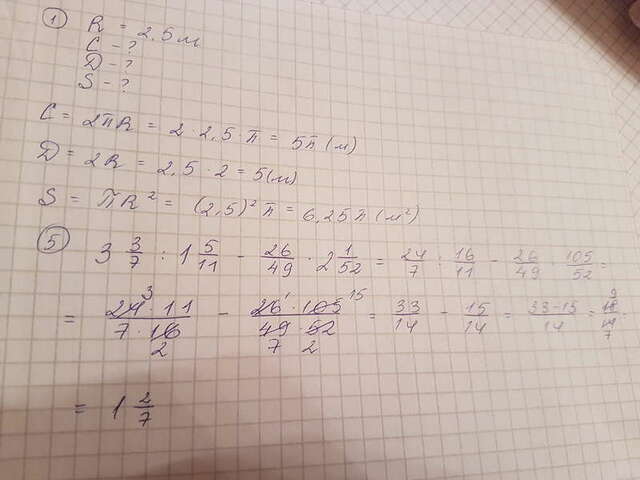 ① R = 2,5 м
C - ?
D - ?
S - ?
C = 2πR = 2 · 2,5 π = 5π (м)
D = 2R = 2,5 · 2 = 5 (м)
S = πR² = (2,5)² π = 6,25 π (м²)
⑤ 3 3/7 : 1 5/11 - 26/49 · 2 1/52 = 24/7 : 16/11 - 26/49 · 105/52 =
= 24 3 · 11 / 7 · 16 2 - 26 1 · 105 15 / 49 7 · 52 2 = 33/14 - 15/14 = 33-15/14 = 18 9 / 14 7 =
= 1 2/7